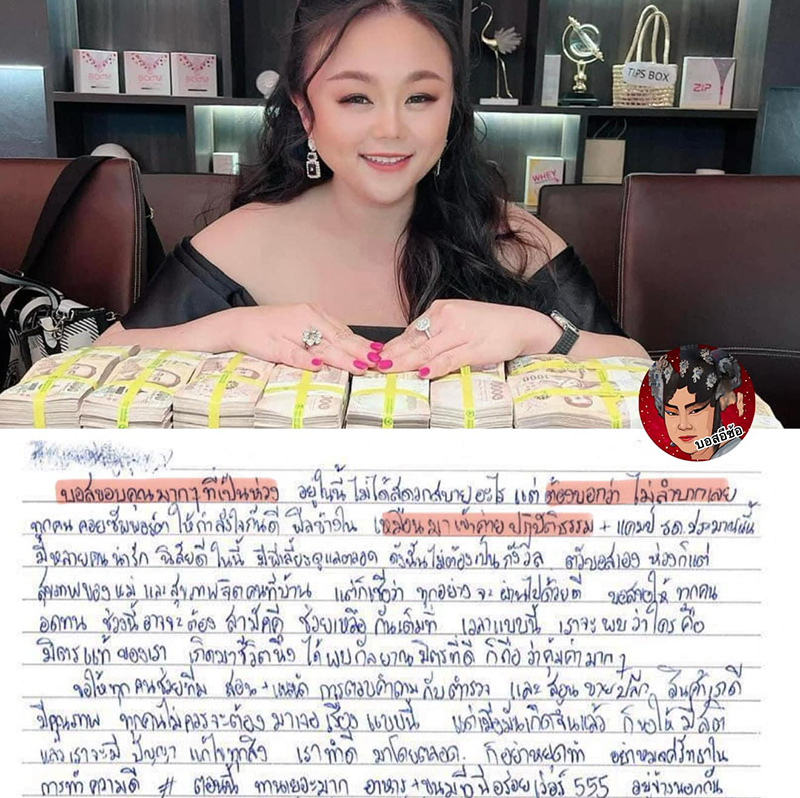 BOOM
BOOM
BOOM
TIPS BOX
ZIP
WHEY
1000
1000
บอสอีซ้อ
บอสขอบคุณมากๆ ที่เป็นห่วง อยู่ในนี้ ไม่ได้สะดวกสบายอะไร แต่ ต้องบอกว่า ไม่ลำบากเลย
ทุกคน คอยซัพพอร์ต ให้กำลังใจกันดี ฟีลข้างใน เหมือนมาเข้าค่ายปฏิบัติธรรม + แคมป์ รด. ประมาณนั้น
มีหลายคน น่ารัก นิสัยดี ในนี้ มีพี่เลี้ยงดูแลตลอด ดังนั้นไม่ต้องเป็นกังวล ตัวบอสเอง ห่วงก็แต่
สุขภาพของแม่ และสุขภาพจิตคนที่บ้าน แต่ก็เชื่อว่า ทุกอย่าง จะ ผ่านไปด้วยดี บอสขอให้ ทุกคน
อดทน ช่วงนี้อาจจะต้อง สามัคคี ช่วยเหลือ กันเต็มที่ เวลาแบบนี้ เราจะ พบ ว่าใคร คือ
มิตรแท้ ของเรา เกิดมาชีวิตนึง ได้ พบกัลยาณมิตรที่ดี ก็ถือ ว่าคุ้มค่ามากๆ
ขอให้ทุกคนช่วยทีม สอน + แนะนำ การตอบคำถาม กับตำรวจ และ สอน ขายปลีก สินค้าเราดี
มีคุณภาพ ทุกคนไม่ควรจะต้อง มาเจอ เรื่อง แบบนี้ แต่เมื่อมันเกิดขึ้นแล้ว ก็ขอให้ มีสติ
แล้วเราจะมี ปัญญา แก้ไขทุกสิ่ง เราทำดี มาโดยตลอด. ก็อย่าหยุดทำ อย่าหมดศรัทธาใน
การทำความดี # ตอนนี้ ทานเยอะมาก อาหาร + ขนมที่นี่อร่อยเว่อร์ 555 อยู่ข้างนอกกัน